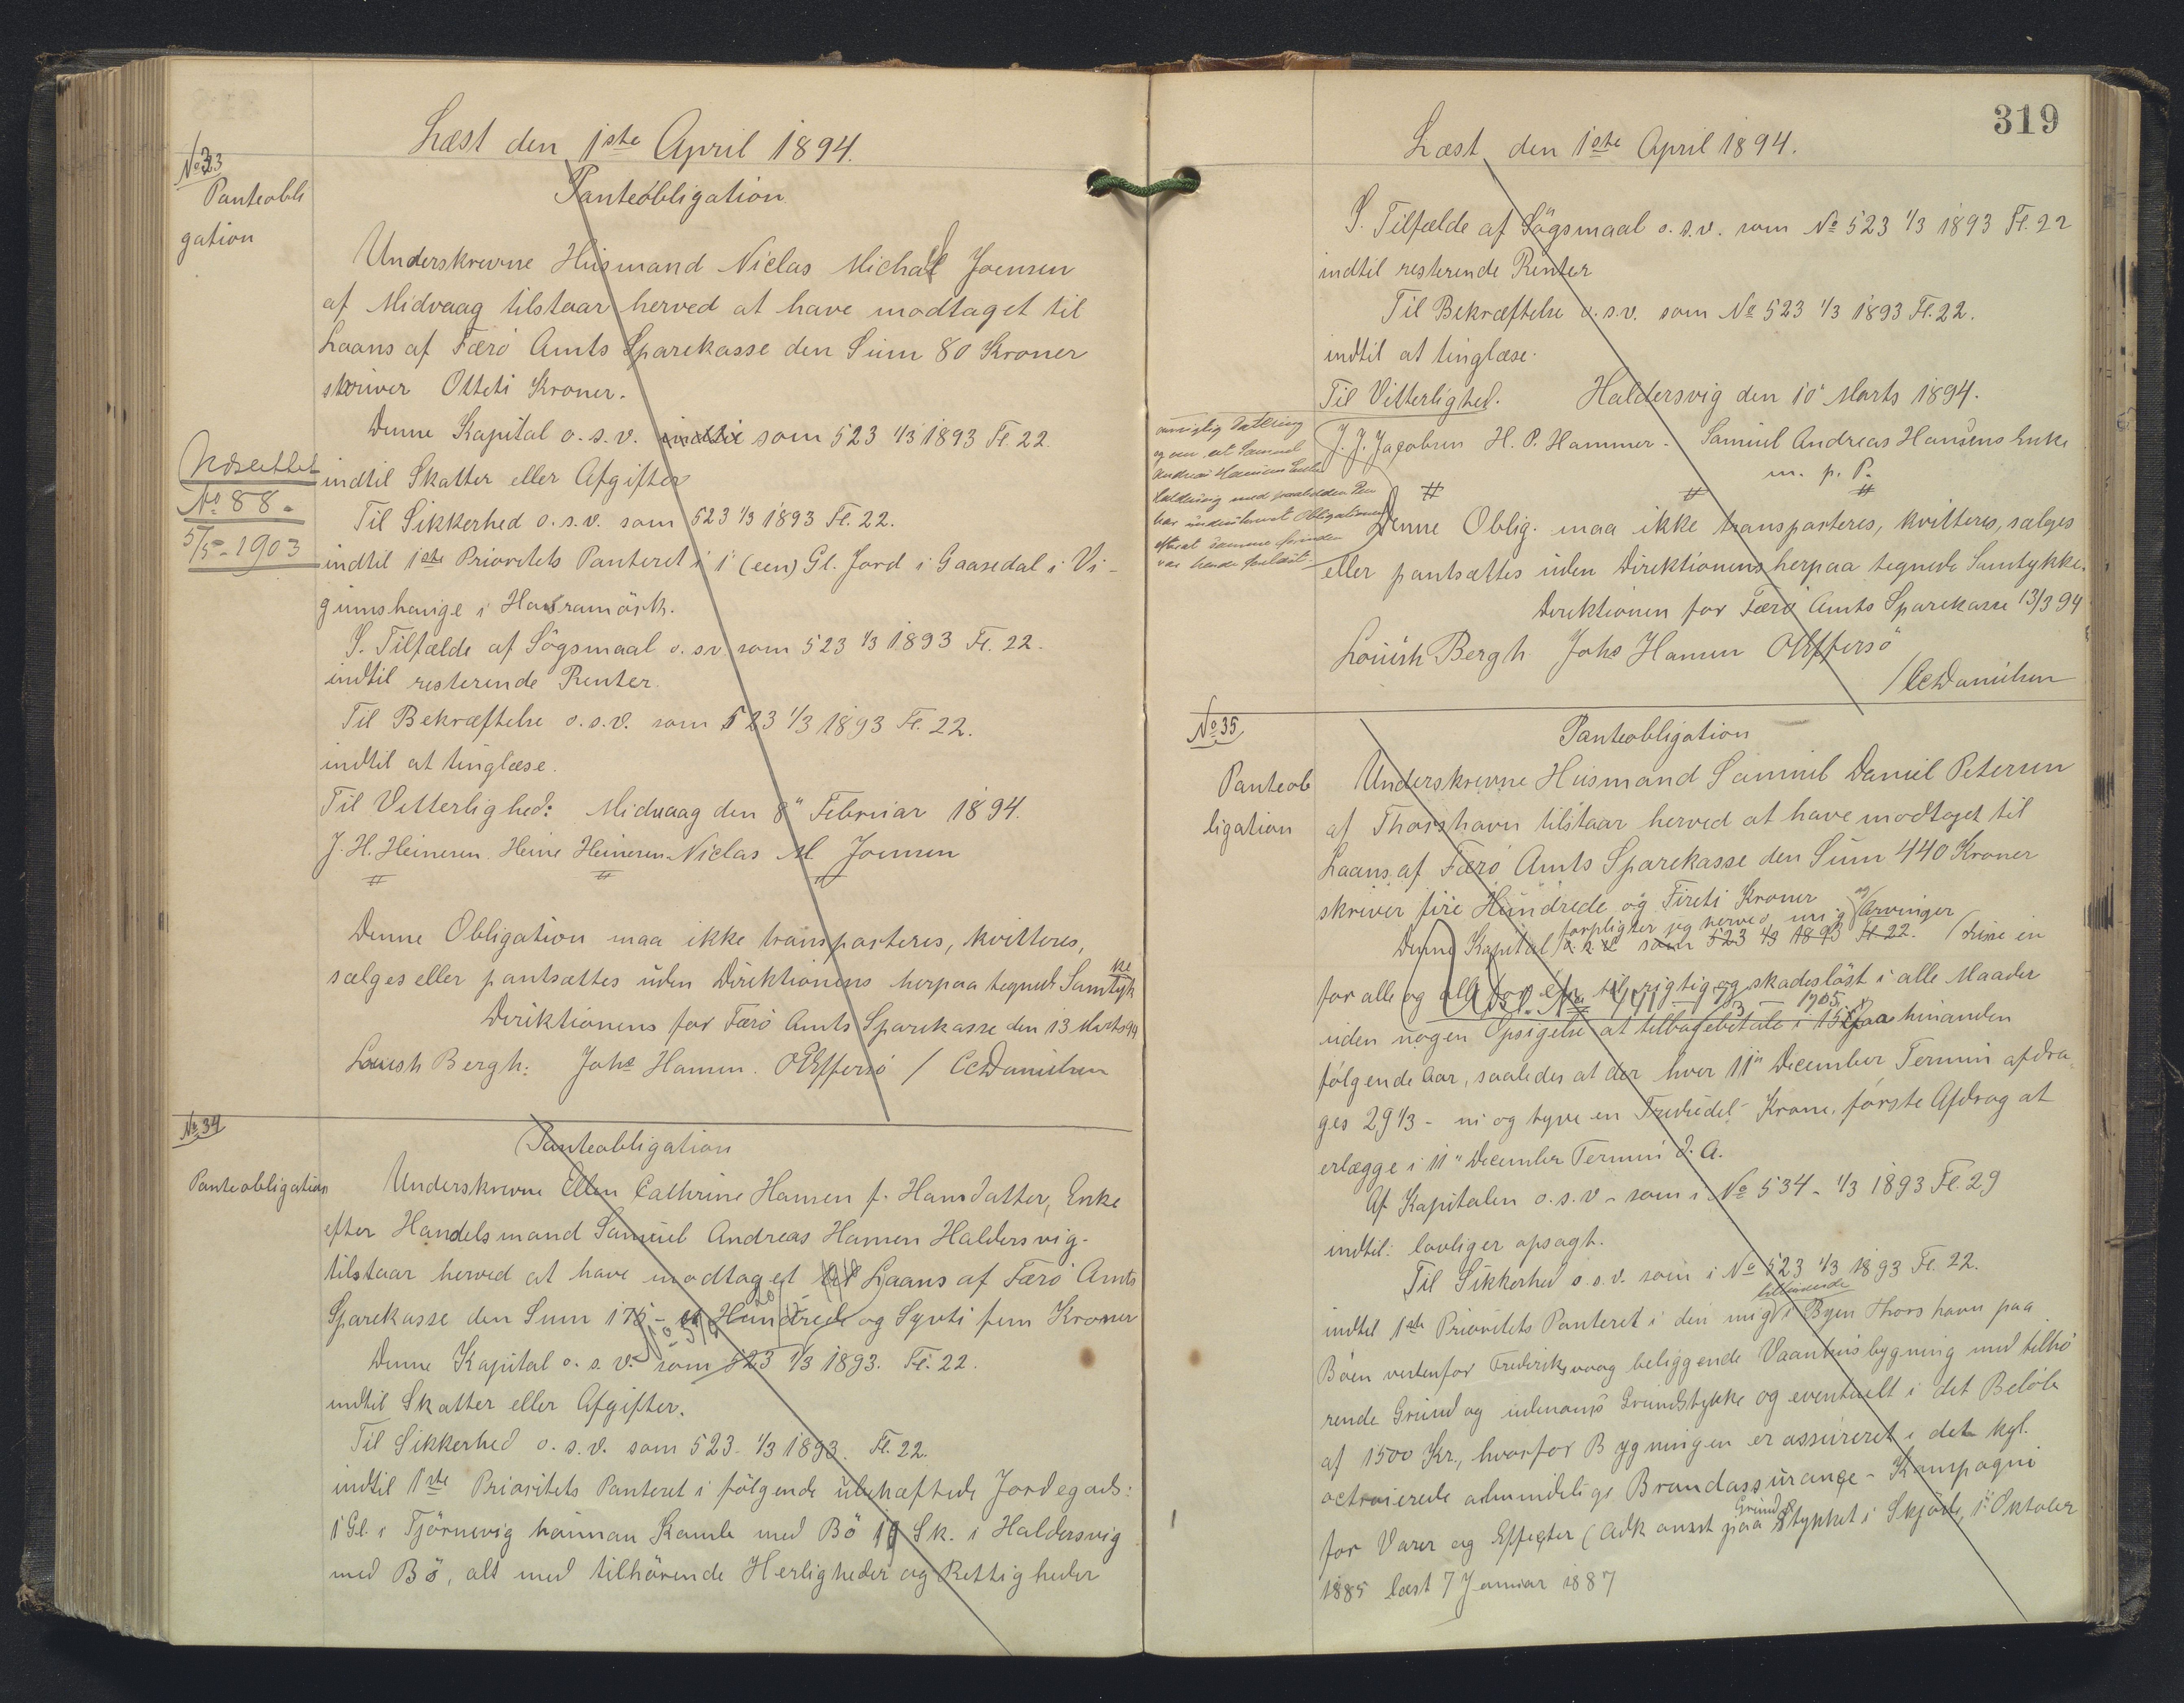 Læst den 1ste April 1894.
No 33
Panteobli
gation
Panteobligation
Underskrevne Húsmand Niclas Michal Joensen
af Midvaag tilstaar herved at have modtaget til
Laans af Færö Amts Sparekasse den Súm 80 Kroner
skriver Otteti Kroner.
Denne Kapital o. s. v. som 523 1/3 1893 Fl. 22.
indtil Skatter eller Afgifter
No 88.
5/5 - 1903
Til Sikkerhed o. s. v. som 523 1/3 1893 Fl. 22.
indtil 1ste Prioritets Panteret i 1 (een) Gl. Jord i Gaasedal i Vi-
gumshauge i Havramörk.
I. Tilfælde af Sögsmaal o. s v. som 523 1/3 1893 Fl. 22.
indtil resterende Renter.
Til Bekræftelse o. s. v. som 523 1/3 1893 Fl. 22.
indtil at tinglæse.
Til Vitterlighed: Midvaag den 8" Februar 1894.
J. H. Heinesen. Heine Heinesen Niclas M Joensen
Denne Obligation maa ikke transporteres, kvitteres,
sælges eller pantsættes úden Direktionens herpaa tegnede Samtykke
Direktionens for Færö Amts Sparekasse den 13 Marts 94
Louish Bergh. Johs Hansen. OEffersö / CCDanielsen
No 34
Panteobligation
Panteobligation
Underskrevne Ellen Cathrine Hansen f. Hansdatter, Enke
efter Handelsmand Samúel Andreas Hansen Haldersvig.
tilstaar herved at have modtaget til Laans af Færö Amts
Sparekasse den Sum 175 - et Hundrede og Syvti fem Kroner
Denne Kapital o. s. v. som 523 1/3 1893. Fl. 22.
indtil Skatter eller Afgifter.
Til Sikkerhed o. s. v. som 523 1/3 1893. Fl. 22.
indtil 1ste Prioritets Panteret i fölgende úbehæftede Jordegods:
1 Gl. i Tjörnevig med Bö Sk. i Haldersvig
med Bö, alt med tilhörende Herligheder og Rettigheder
319
Læst den 1ste April 1894.
I. Tilfælde af Sögsmaal o. s. v. som No 523 1/3 1893 Fl. 22
indtil resterende Renter
Til Bekræftelse o. s. v. som No 523 1/3 1893 Fl. 22.
indtil at tinglæse.
Til Vitterlighed. Haldersvig den 10 Marts 1894.
J. J. Jacobsen H. P. Hammer - Samuel Andreas Hansens Enke
m. p. P.
Denne Oblig. maa ikke transporteres, kvitteres, sælges
eller pantsættes úden Direktionens herpaa tegnede Samtykke.
Direktionen for Færö Amts Sparekasse 13/3 94
Louish Bergh Johs Hansen OEffersö
/ CCDanielsen
No 35
Panteob
ligation
Panteobligation
Underskrevne Húsmand Samuel Daniel Petersen
af Thorshavn tilstaar herved at have modtaget til
Laans af Færö Amts Sparekasse den Súm 440 Kroner
skriver fire Húndrede og Fireti Kroner
forpligter jeg herved mig og Arvinger
Denne Kapital o. s. v. som 523 1/3 1893 Fl. 22.
for alle og alle for en til rigtig og skadeslöst i alle Maader
1905
úden nogen Opsigelse at tilbagebetale i 15 paa hinanden
fölgende Aar, saaledes at der hver 11" December Termin afdra
ges 29 1/3 - ni og tyve en Trediedel - Krone, förste Afdrag at
erlægge i 11" December Termin d. A.
Af Kapitalen o. s. v - som i No 534 - 1/3 1893 Fl. 29
indtil: lovliger opsagt.
Til Sikkerhed o. s. v. som i No 523 1/3 1893 Fl. 22.
tilhörende
indtil 1ste Prioritets Panteret i den mig i Byen Thorshavn paa
Böen vestenfor Frederiksvaag beliggende Vaanhúsbygning med tilhö
rende Grúnd og Grundstykke og eventuelt i det Belöb
af 1500 Kr., hvorfor Bygningen er assúreret i det kgl.
octroierede almindelige Brandassúrange - Kompagni
for Varer og Effecter (Adk. anset paa Grundstykket i Skjöde, 1" Oktober
1885 læst 7 Januar 1887